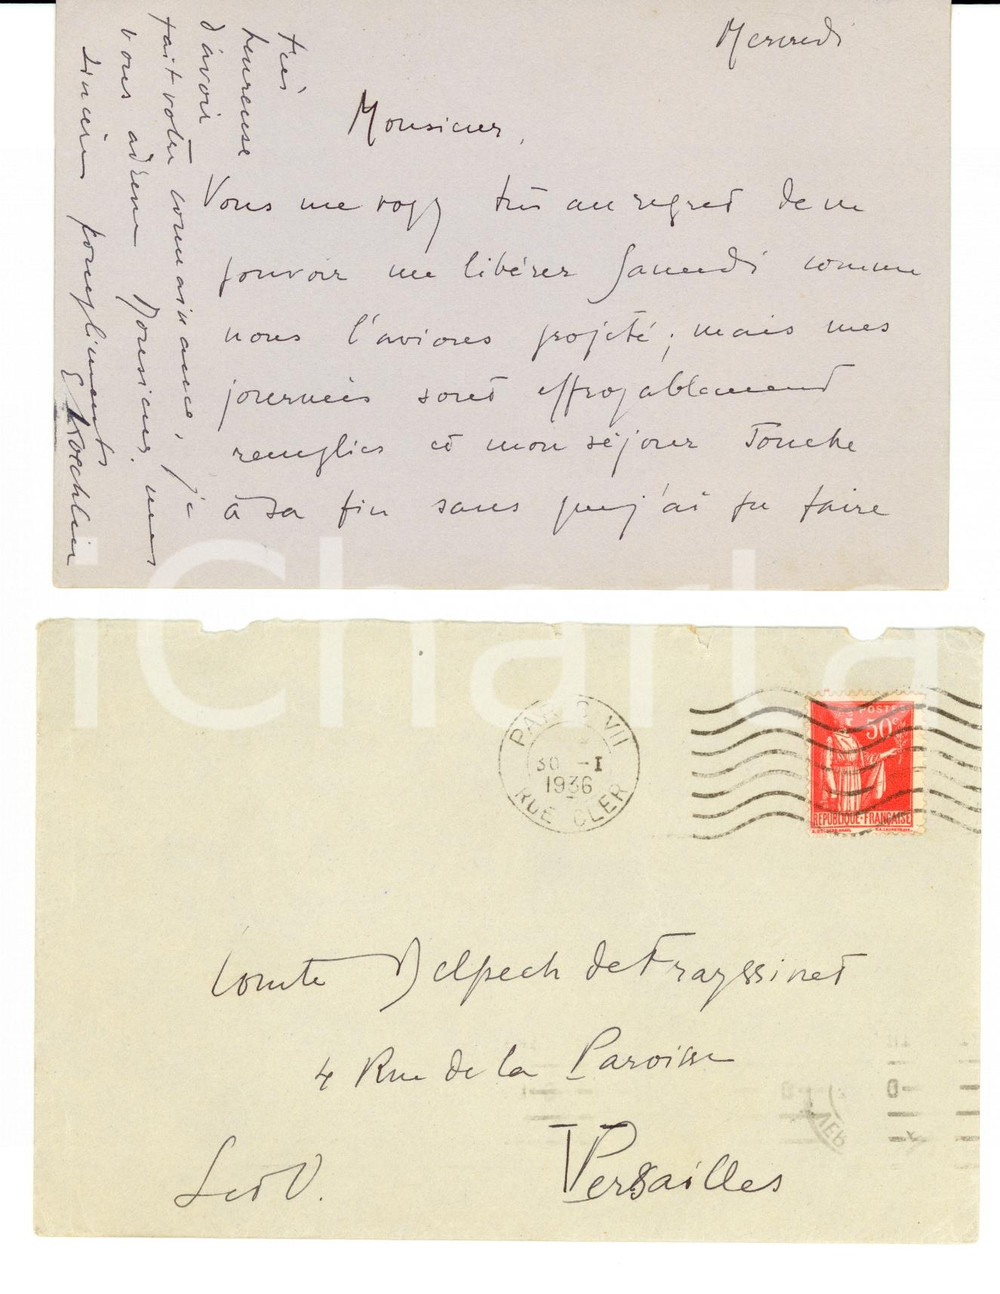 Mercredi
Monsieur,
Vous me voyez très au regret de ne
pouvoir me libérer Samedi comme
nous l'avions projeté; mais mes
journées sont effroyablement
remplies et mon séjour touche
à sa fin sans que j'ai pu faire
très
heureuse
d'avoir
fait votre connaissance, je
vous adresse Monsieur, mes
sincères compliments
E Koechlin
iCharta
PARIS VII
30 -I
1936
RUE CLER
POSTES
50c
REPUBLIQUE-FRANÇAISE
Comte Delpech de Frayssinet
4 Rue de la Paroisse
Versailles
S et O.